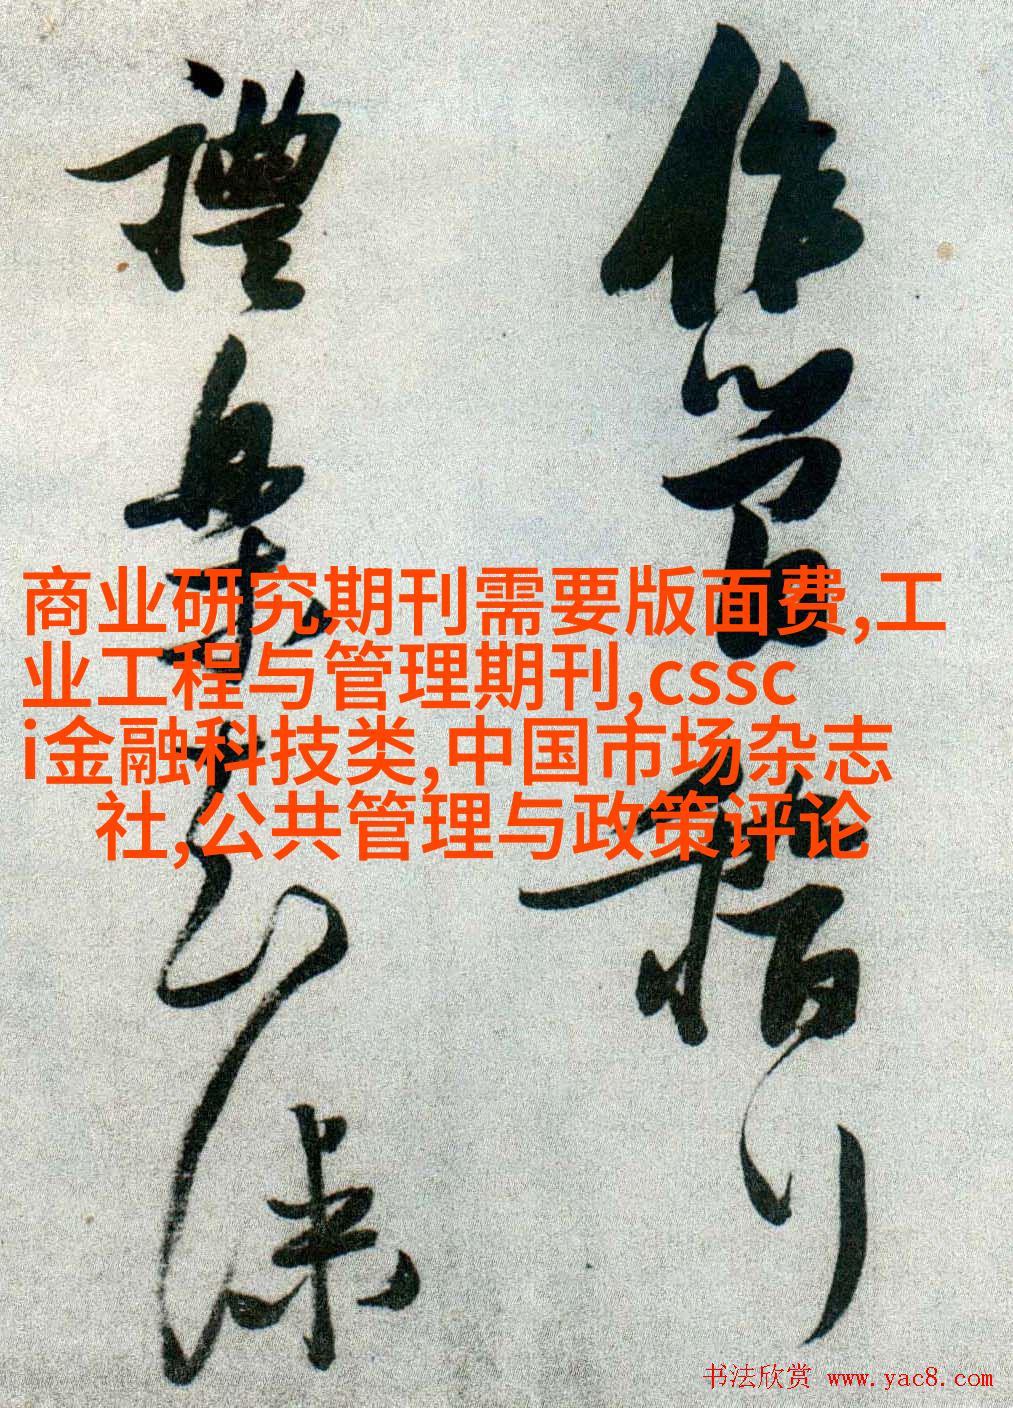 作
禮樂
商业研究期刊需要版面费,工
业工程与管理期刊,cssc
i金融科技类,中国市场杂志
社,公共管理与政策评论
书法欣赏 www.yac8.com